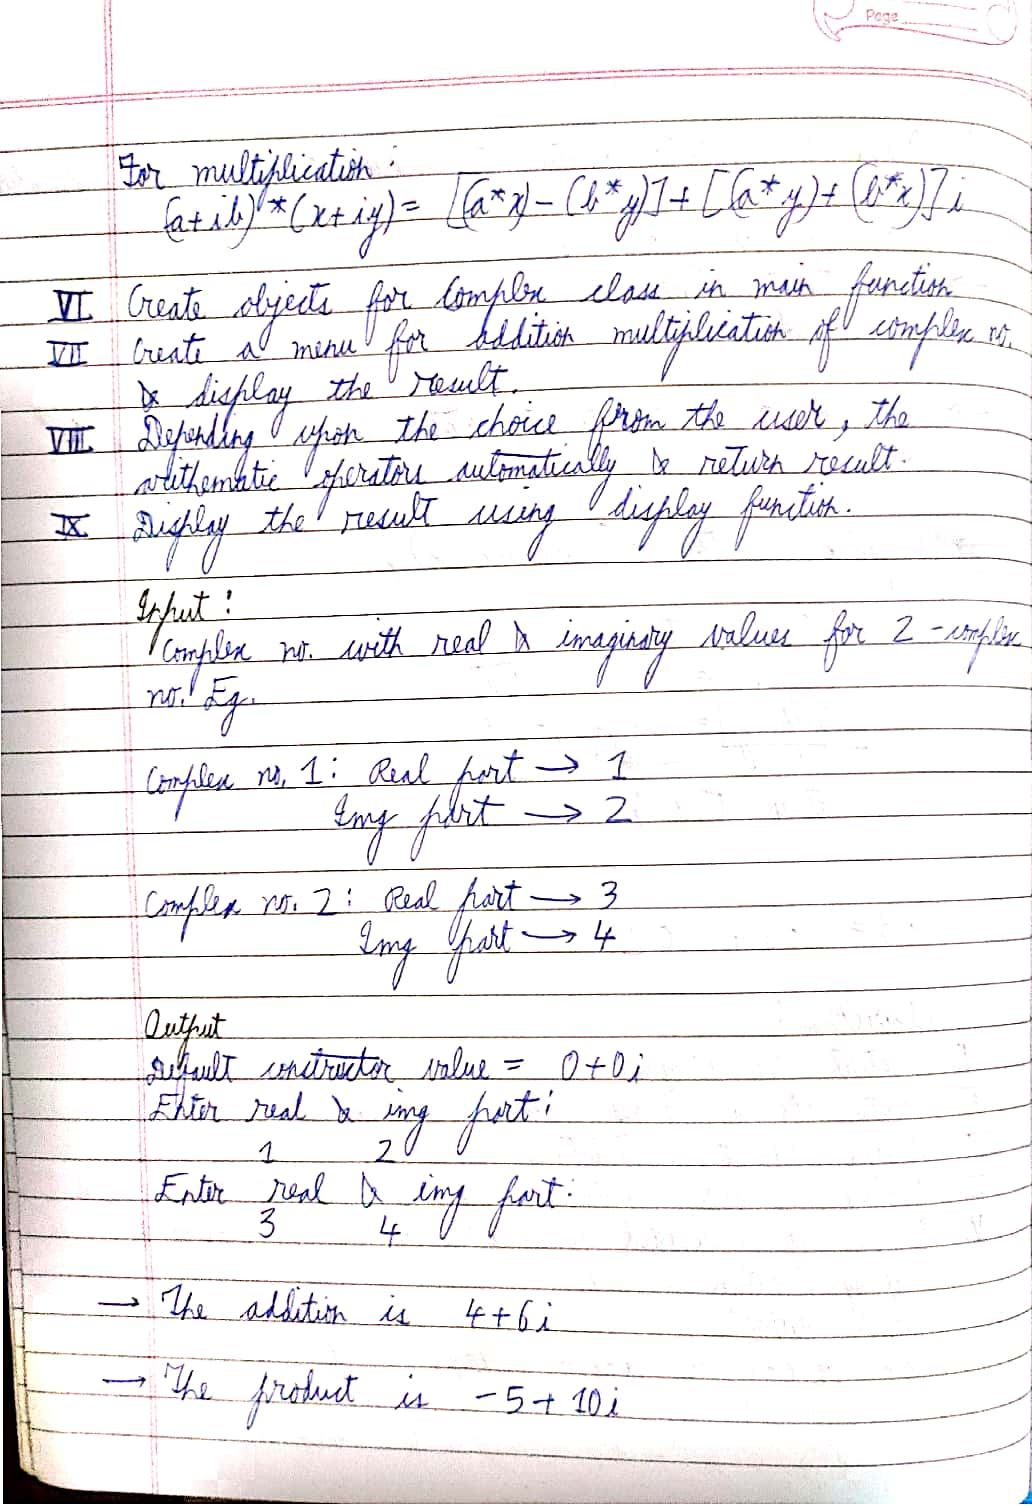 Page
For multiplication :
(a+ib)*(x+iy)= [(a*x)-(b*y)]+[(a*y)+(b*x)]i
VI Create objects for Complex class in main function
VII Create a menu for addition multiplication of complex no.
& display the result.
VIII. Depending upon the choice from the user, the
arithematic operators automatically & return result.
IX Display the result using display function.
Input :
Complex no. with real & imaginary values for 2-complex
no. Eg.
Complex no. 1: Real part → 1
Img part → 2
Complex no. 2: Real part → 3
Img part → 4
Output
Default constructor value = 0+0i
Enter real & img part:
1 2
Enter real & img part:
3 4
→ The addition is 4+6i
→ The product is -5+10i